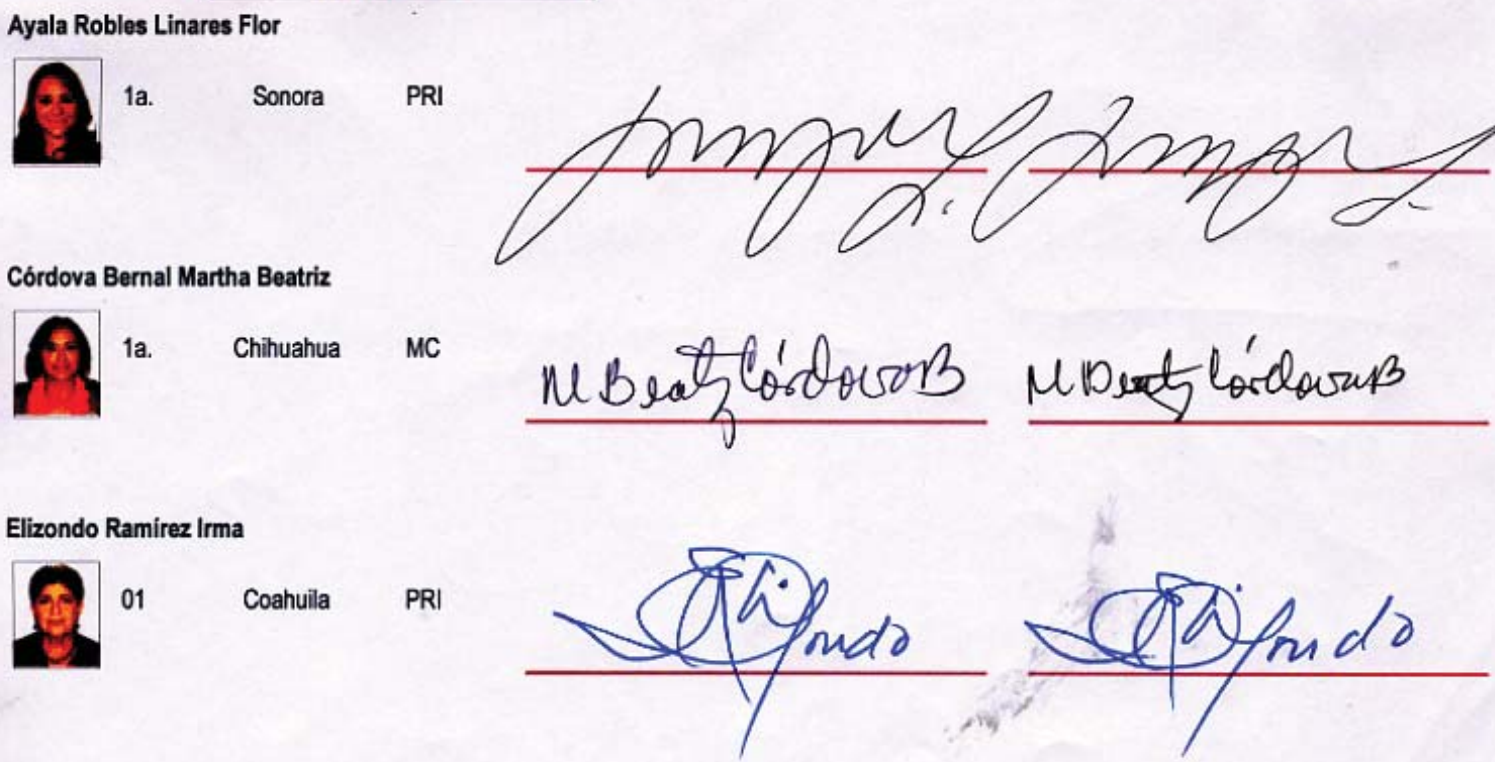 Ayala Robles Linares Flor
1a. Sonora PRI
Córdova Bernal Martha Beatriz
1a. Chihuahua MC
M Beatz CórdovaB M Beatz CórdovaB
Elizondo Ramírez Irma
01 Coahuila PRI
Elizondo Elizondo